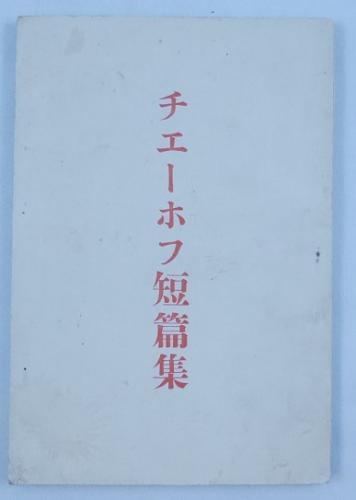 チエーホフ短篇集